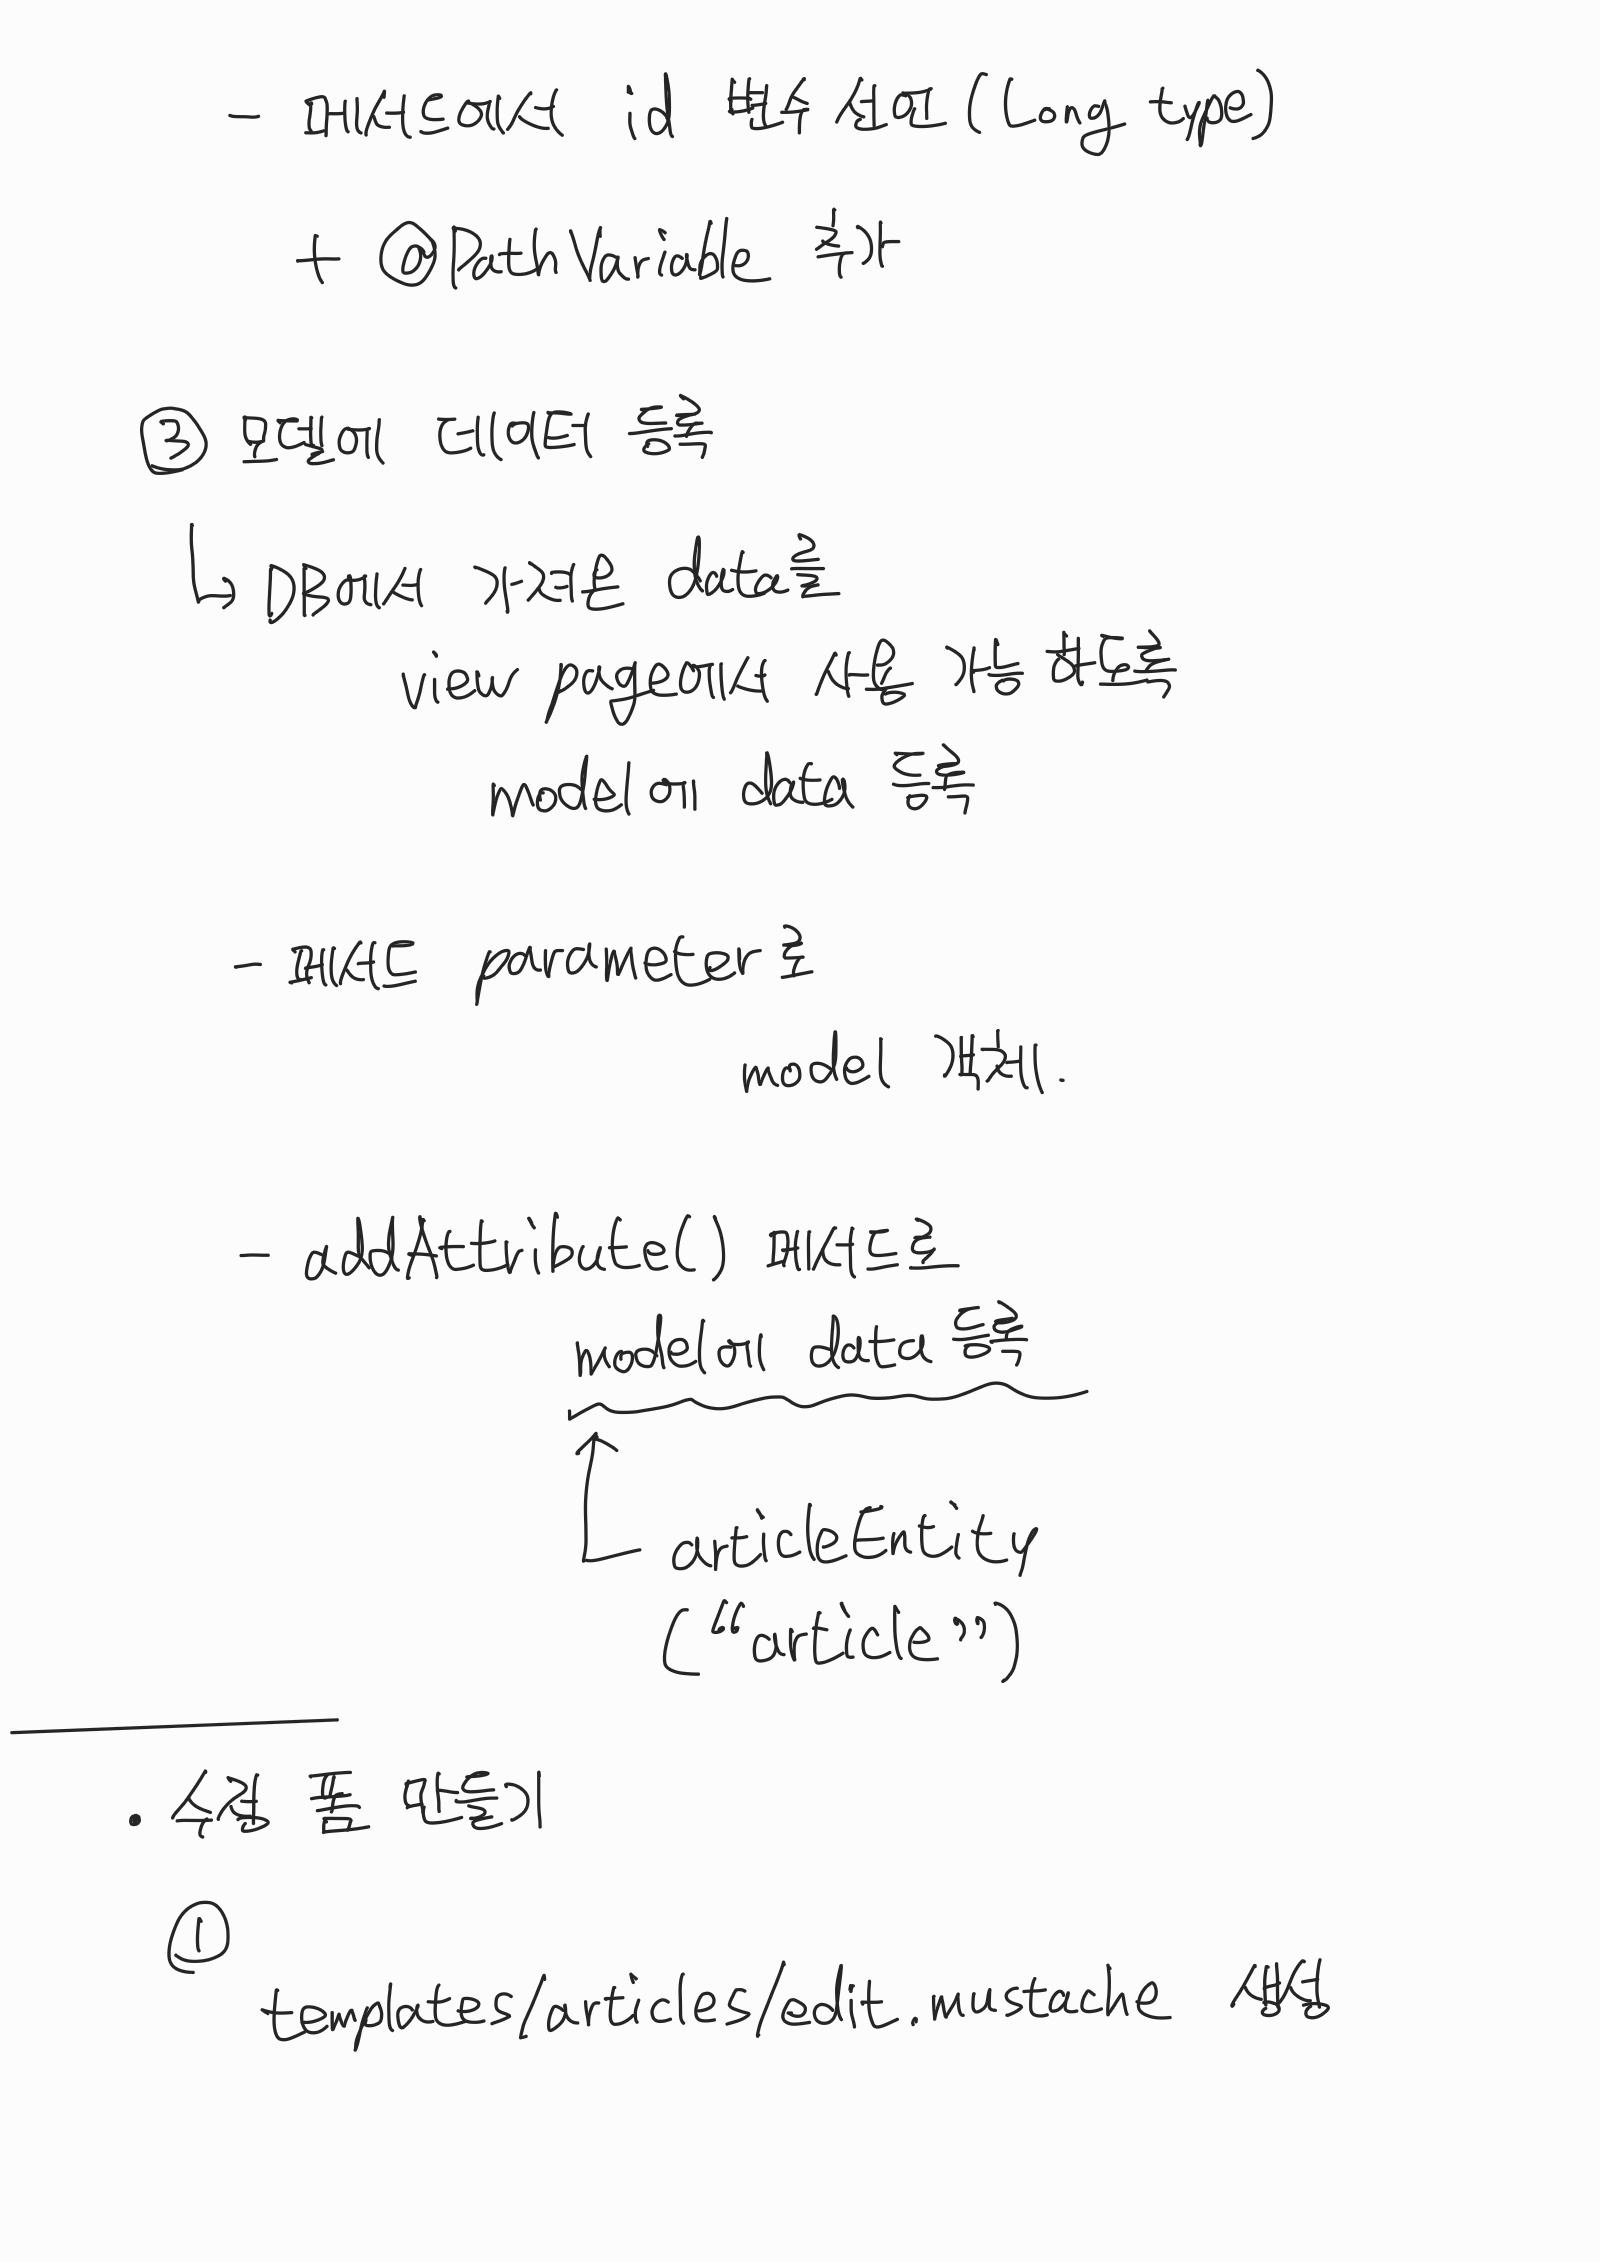 - 메서드에서 id 변수 선언 (Long type)
+ @PathVariable 추가
③ 모델에 데이터 등록
↳ DB에서 가져온 data를
view page에서 사용 가능 하도록
model에 data 등록
- 메서드 parameter로
model 객체.
- addAttribute() 메서드로
model에 data 등록
articleEntity
(“article”)
• 수정 폼 만들기
①
templates/articles/edit.mustache 생성